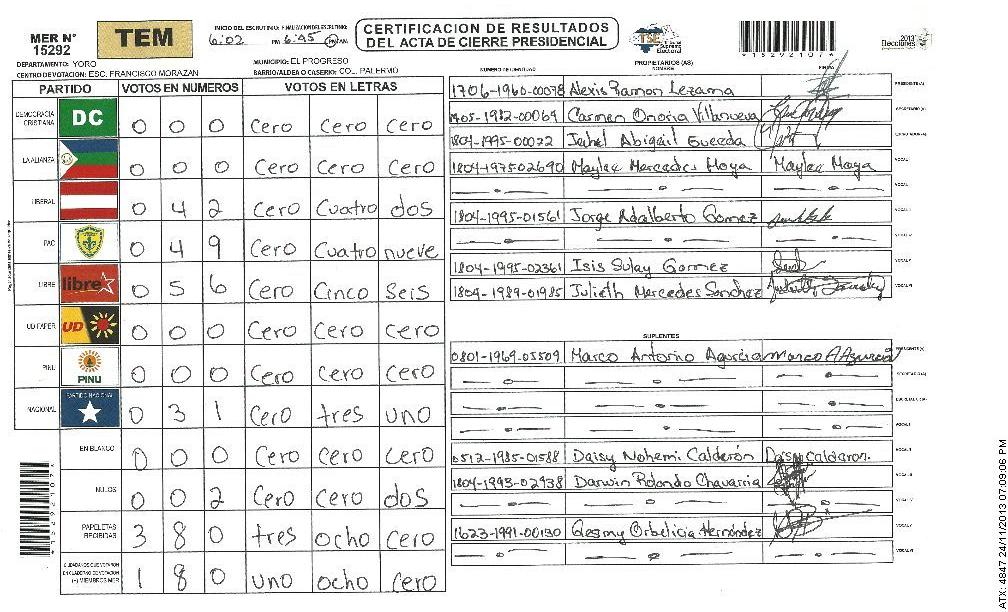 MER N° 15292
TEM
INICIO DEL ESCRUTINIO: FINALIZACION DEL ESCRUTINIO:
6:02 PM 6:45 PM
CERTIFICACION DE RESULTADOS
DEL ACTA DE CIERRE PRESIDENCIAL
TSE
Tribunal Supremo Electoral
2013
Elecciones
*1529210?4*
DEPARTAMENTO: YORO
MUNICIPIO: EL PROGRESO
CENTRO DE VOTACION: ESC. FRANCISCO MORAZAN
BARRIO/ALDEA O CASERIO: COL. PALERMO
PARTIDO VOTOS EN NUMEROS VOTOS EN LETRAS
DEMOCRACIA CRISTIANA DC 0 0 0 Cero Cero Cero
LA ALIANZA 0 0 0 Cero Cero Cero
LIBERAL 0 4 2 Cero Cuatro dos
PAC 0 4 9 Cero Cuatro nueve
LIBRE libre 0 5 6 Cero Cinco Seis
UD FAPER UD 0 0 0 Cero Cero Cero
PINU PINU 0 0 0 Cero Cero Cero
NACIONAL PARTIDO NACIONAL 0 3 1 Cero tres uno
EN BLANCO 0 0 0 Cero Cero Cero
NULOS 0 0 2 Cero Cero dos
PAPELETAS RECIBIDAS 3 8 0 tres ocho Cero
CIUDADANOS QUE VOTARON EN CUADERNO DE VOTACION (+) MIEMBROS MER 1 8 0 uno ocho Cero
PROPIETARIOS (AS)
NUMERO DE IDENTIDAD NOMBRE FIRMA
1706-1960-00078 Alexis Ramon Lezama PRESIDENTE(A)
1405-1982-00069 Carmen Onoria Villanueva SECRETARIO(A)
1804-1995-00072 Jethel Abigail Guecda ESCRUTADOR(A)
1804-1975-02690 Maylee Mercedes Moya Maylee Moya VOCAL I
1804-1995-01561 Jorge Adalberto Gomez
1804-1995-02361 Isis Sulay Gomez
1804-1989-01985 Julieth Mercedes Sanchez
SUPLENTES
0801-1969-05509 Marco Antonio Agurcia Marco A Agurcia PRESIDENTE(A)
SECRETARIO(A)
ESCRUTADOR(A)
VOCAL I
0512-1985-01588 Daisy Nohemi Calderón Daisy Calderon.
1804-1993-02938 Darwin Rolando Chavarria
1623-1991-00130 Gesmy Orbelicia Hernández
ATX: 4847 24/11/2013 07:09:06 PM